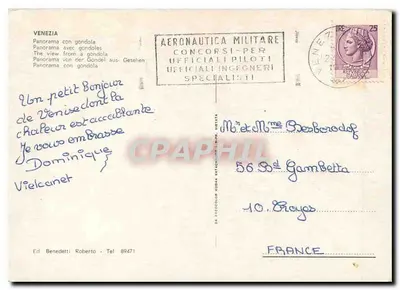 VENEZIA
Panorama con gondola
Panorama avec gondoles
The view from a gondola
Panorama von der Gondel aus Gesehen
Panorama con gondola
AERONAUTICA MILITARE
CONCORSI-PER
UFFICIALI PILOTI
UFFICIALI INGEGNERI
SPECIALISTI
VENEZ
25
Un petit Bonjour
de Venise dont la
chaleur est accablante
Je vous embrasse
Dominique
Vielcanet
CPARAMA.COM
M. et Mme Besborodof
56 Bd Gambetta
10. Troyes
FRANCE
Ed. Benedetti Roberto - Tel 89471